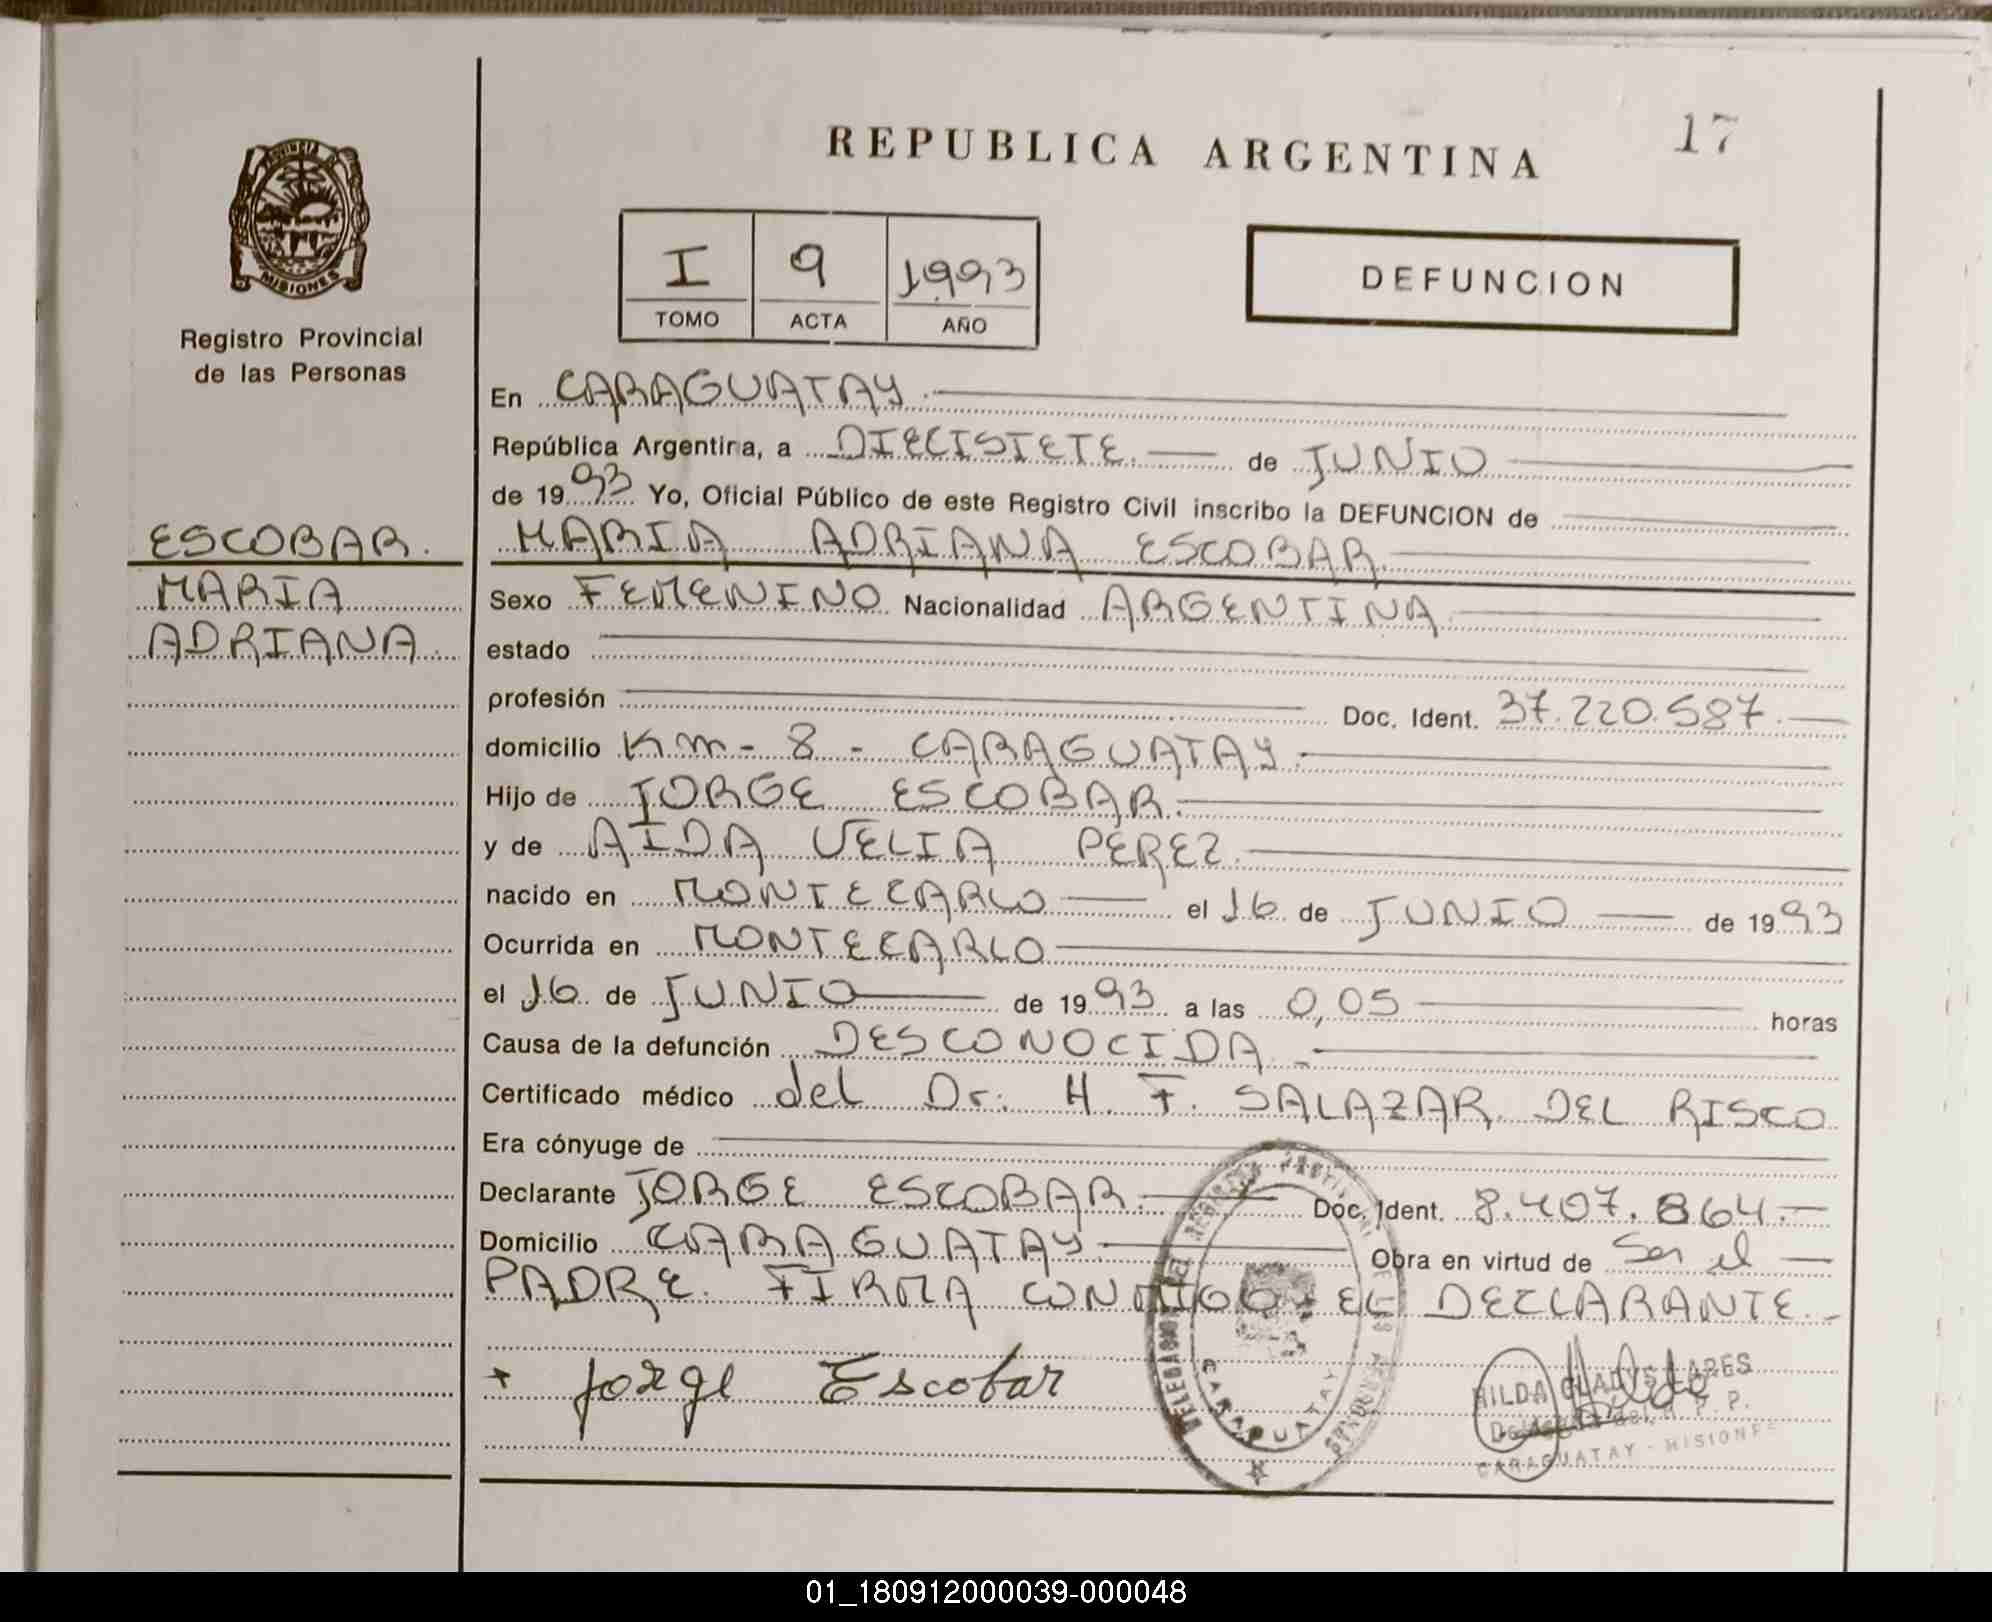 REPUBLICA ARGENTINA
17
PROVINCIA DE
MISIONES
Registro Provincial
de las Personas
I 9 1993
TOMO ACTA AÑO
DEFUNCION
ESCOBAR.
MARIA
ADRIANA.
En CARAGUATAY.
República Argentina, a DIECISIETE. de JUNIO
de 1993 Yo, Oficial Público de este Registro Civil inscribo la DEFUNCION de
MARIA ADRIANA ESCOBAR.
Sexo FEMENINO Nacionalidad ARGENTINA
estado
profesión Doc. Ident. 37.220.587.
domicilio Km - 8 - CARAGUATAY.
Hijo de JORGE ESCOBAR.
y de AIDA VELIA PEREZ.
nacido en MONTECARLO el 16 de JUNIO de 1993
Ocurrida en MONTECARLO
el 16 de JUNIO de 1993 a las 0,05 horas
Causa de la defunción DESCONOCIDA.
Certificado médico del Dr. H. F. SALAZAR DEL RISCO
Era cónyuge de
Declarante JORGE ESCOBAR. Doc. Ident. 8.407.864.
Domicilio CARAGUATAY. Obra en virtud de Ser el
PADRE. FIRMA CONMIGO EL DECLARANTE.
+ Jorge Escobar
CARAGUATAY
HILDA GLADYS
CARAGUATAY - MISIONES
01_180912000039-000048